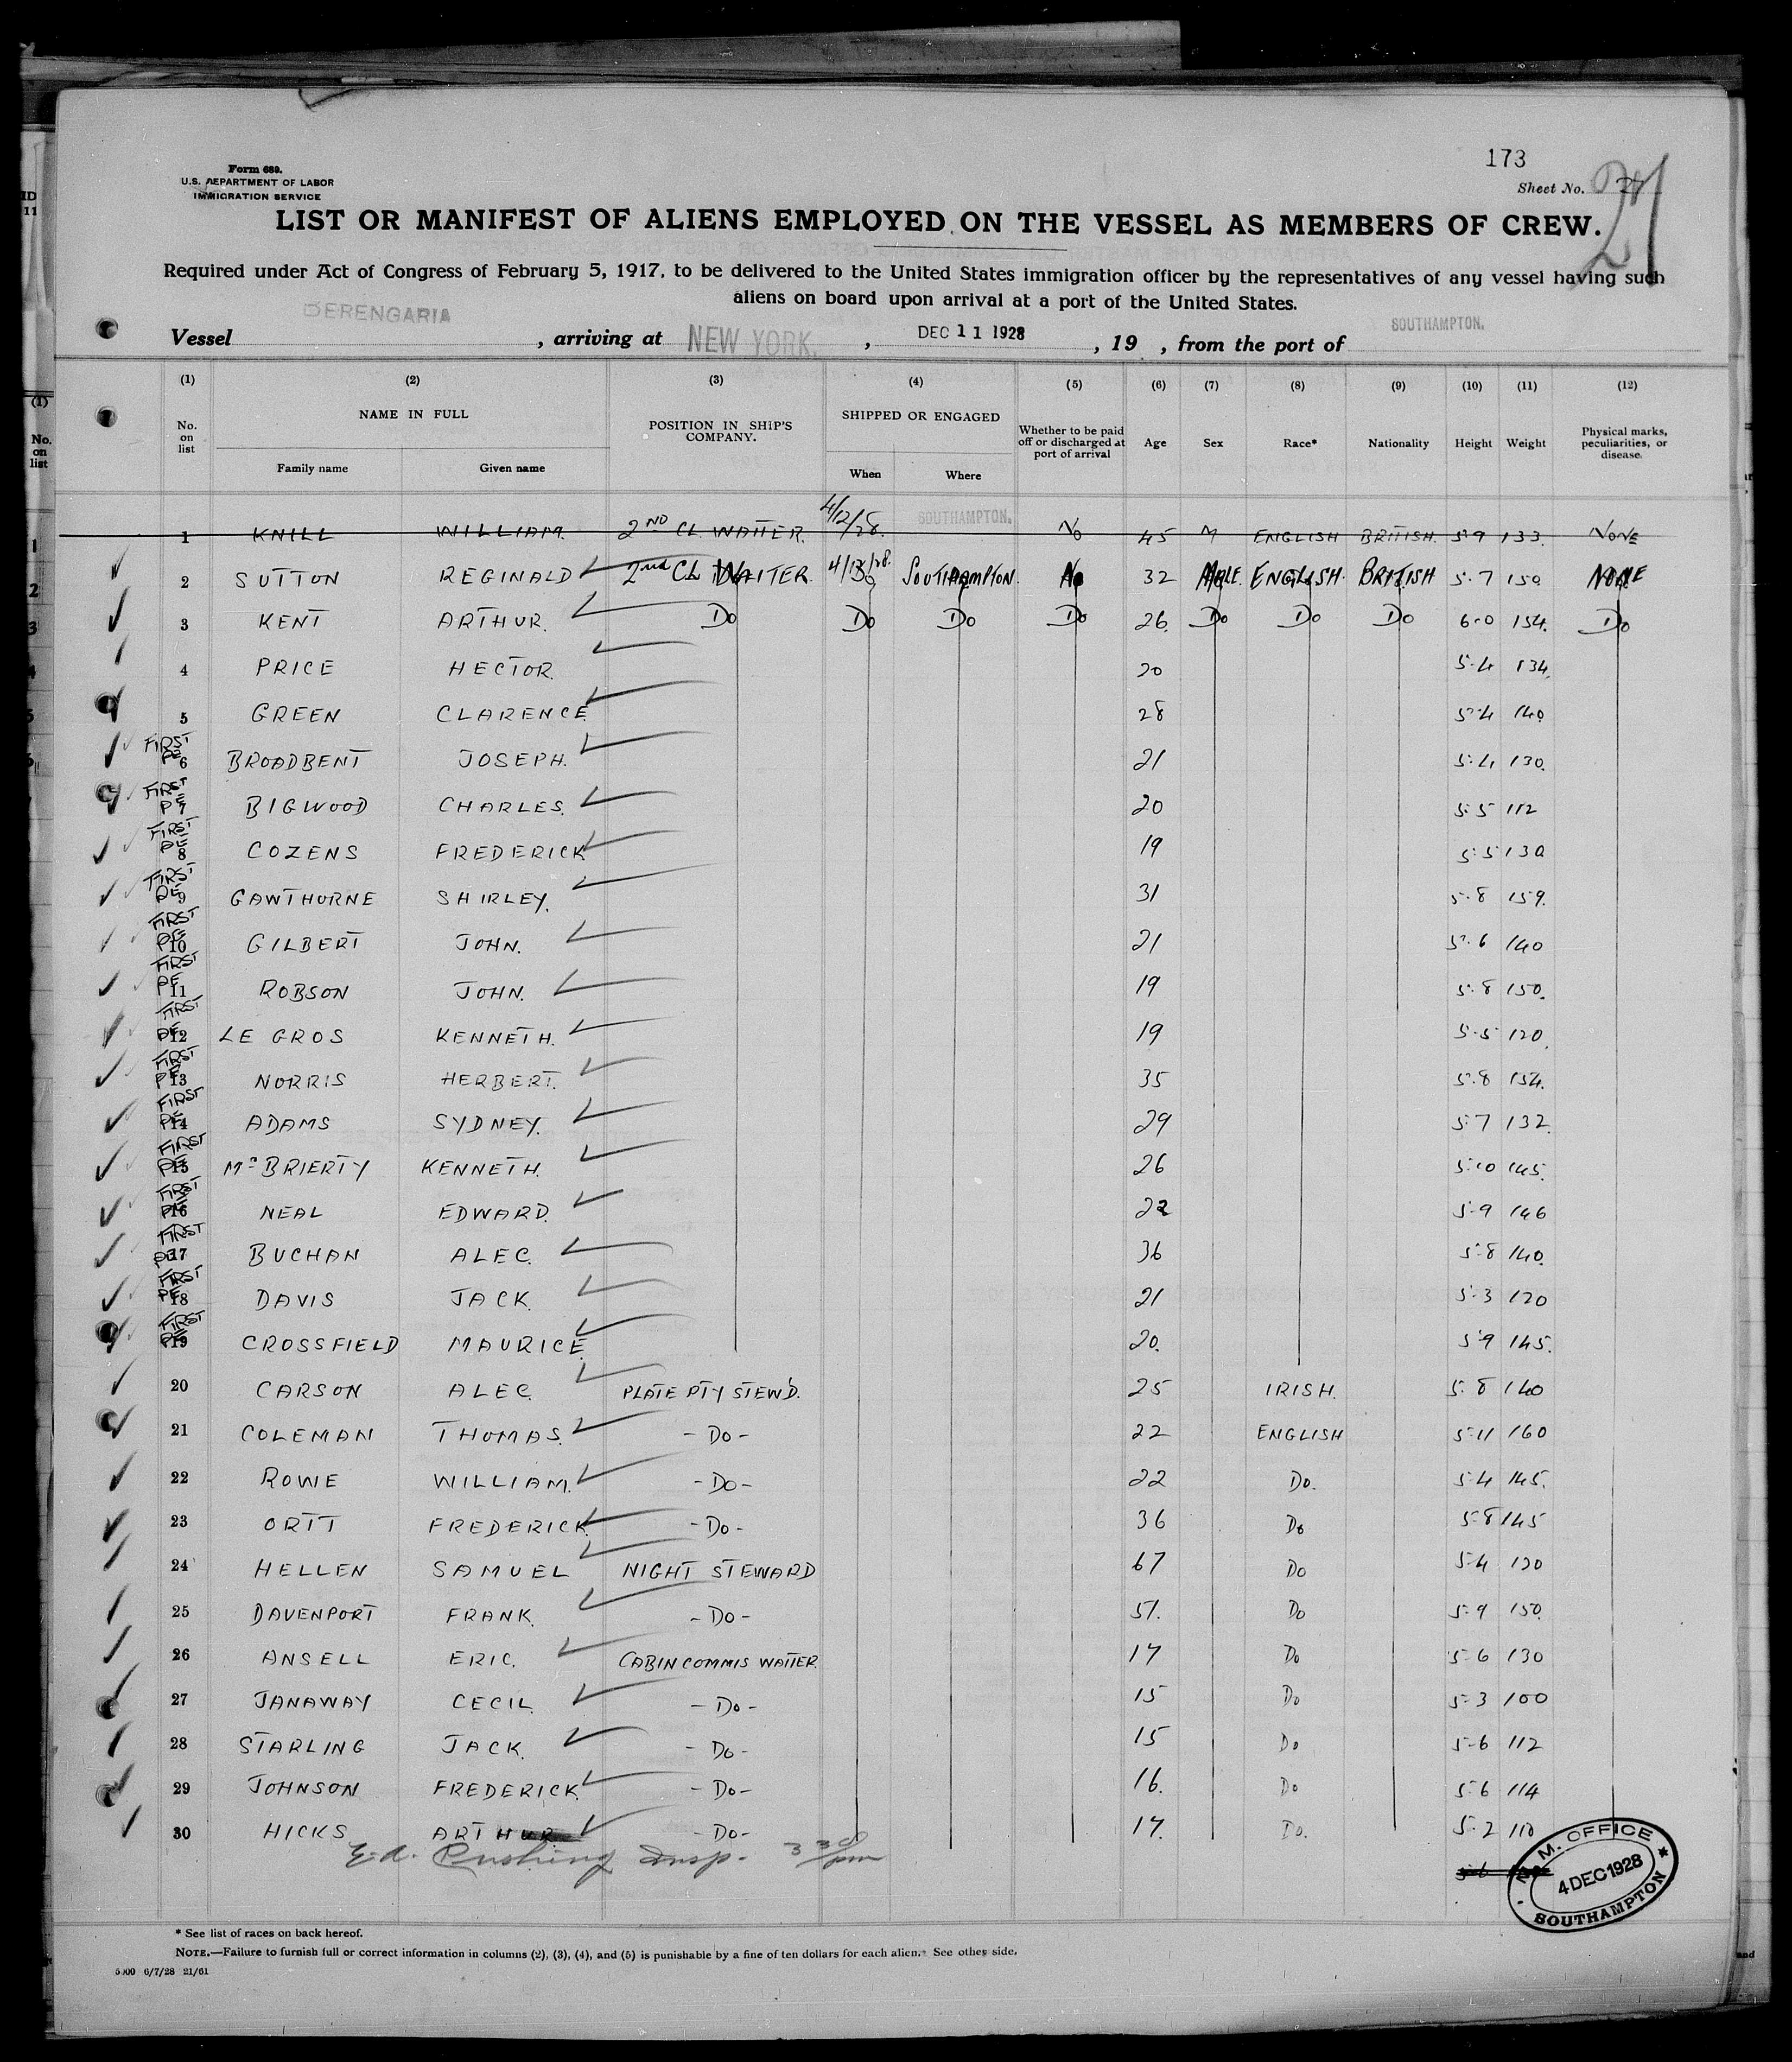 173
Form 680.
U.S. DEPARTMENT OF LABOR
IMMIGRATION SERVICE
Sheet No. 27
LIST OR MANIFEST OF ALIENS EMPLOYED ON THE VESSEL AS MEMBERS OF CREW.
Required under Act of Congress of February 5, 1917, to be delivered to the United States immigration officer by the representatives of any vessel having such
aliens on board upon arrival at a port of the United States.
Vessel BERENGARIA, arriving at NEW YORK, DEC 11 1928, 19 , from the port of SOUTHAMPTON.
(1) (2) (3) (4) (5) (6) (7) (8) (9) (10) (11) (12)
No. on list NAME IN FULL Family name Given name POSITION IN SHIP'S COMPANY. SHIPPED OR ENGAGED When Where Whether to be paid off or discharged at port of arrival Age Sex Race* Nationality Height Weight Physical marks, peculiarities, or disease.
1 KNILL WILLIAM. 2ND CL. WAITER. 4/12/28. SOUTHAMPTON. No 45 M ENGLISH BRITISH. 5.9 133. NONE
2 SUTTON REGINALD 2nd CL WAITER. 4/12/28. SOUTHAMPTON. No 32 MALE. ENGLISH. BRITISH 5.7 150 NONE
3 KENT ARTHUR. Do Do Do Do 26. Do Do Do 6.0 154. Do
4 PRICE HECTOR. 20 5.4 134.
5 GREEN CLARENCE 28 5.4 140
FIRST
PE 6 BROADBENT JOSEPH. 21 5.4 130.
FIRST
PE 7 BIGWOOD CHARLES. 20 5.5 112
FIRST
PE 8 COZENS FREDERICK 19 5.5 130
FIRST
PE 9 GAWTHORNE SHIRLEY. 31 5.8 159.
FIRST
PE 10 GILBERT JOHN. 21 5.6 140
FIRST
PE 11 ROBSON JOHN. 19 5.8 150.
FIRST
PE 12 LE GROS KENNETH. 19 5.5 120.
FIRST
PE 13 NORRIS HERBERT. 35 5.8 154.
FIRST
PE 14 ADAMS SYDNEY. 29 5.7 132.
FIRST
PE 15 McBRIERTY KENNETH. 26 5.10 145.
FIRST
PE 16 NEAL EDWARD. 22 5.9 146
FIRST
PE 17 BUCHAN ALEC. 36 5.8 140.
FIRST
PE 18 DAVIS JACK. 21 5.3 120
FIRST
PE 19 CROSSFIELD MAURICE 20. 5.9 145.
20 CARSON ALEC. PLATE PTY STEW'D. 25 IRISH. 5.8 140
21 COLEMAN THOMAS. - Do - 22 ENGLISH 5.11 160
22 ROWE WILLIAM. - Do - 22 Do. 5.4 145.
23 ORTT FREDERICK. - Do - 36 Do 5.8 145
24 HELLEN SAMUEL NIGHT STEWARD 67 Do 5.4 120
25 DAVENPORT FRANK. - Do - 51. Do 5.9 150.
26 ANSELL ERIC. CABIN COMMIS WAITER. 17 Do 5.6 130
27 JANAWAY CECIL. - Do - 15 Do 5.3 100
28 STARLING JACK. - Do - 15 Do 5.6 112
29 JOHNSON FREDERICK. - Do - 16. Do 5.6 114
30 HICKS ARTHUR - Do - 17. Do. 5.2 110
E.A. Cushing Insp. 3 30 pm
M.M. OFFICE
4 DEC 1928
SOUTHAMPTON
* See list of races on back hereof.
NOTE.—Failure to furnish full or correct information in columns (2), (3), (4), and (5) is punishable by a fine of ten dollars for each alien. See other side.
5000 6/7/28 21/61